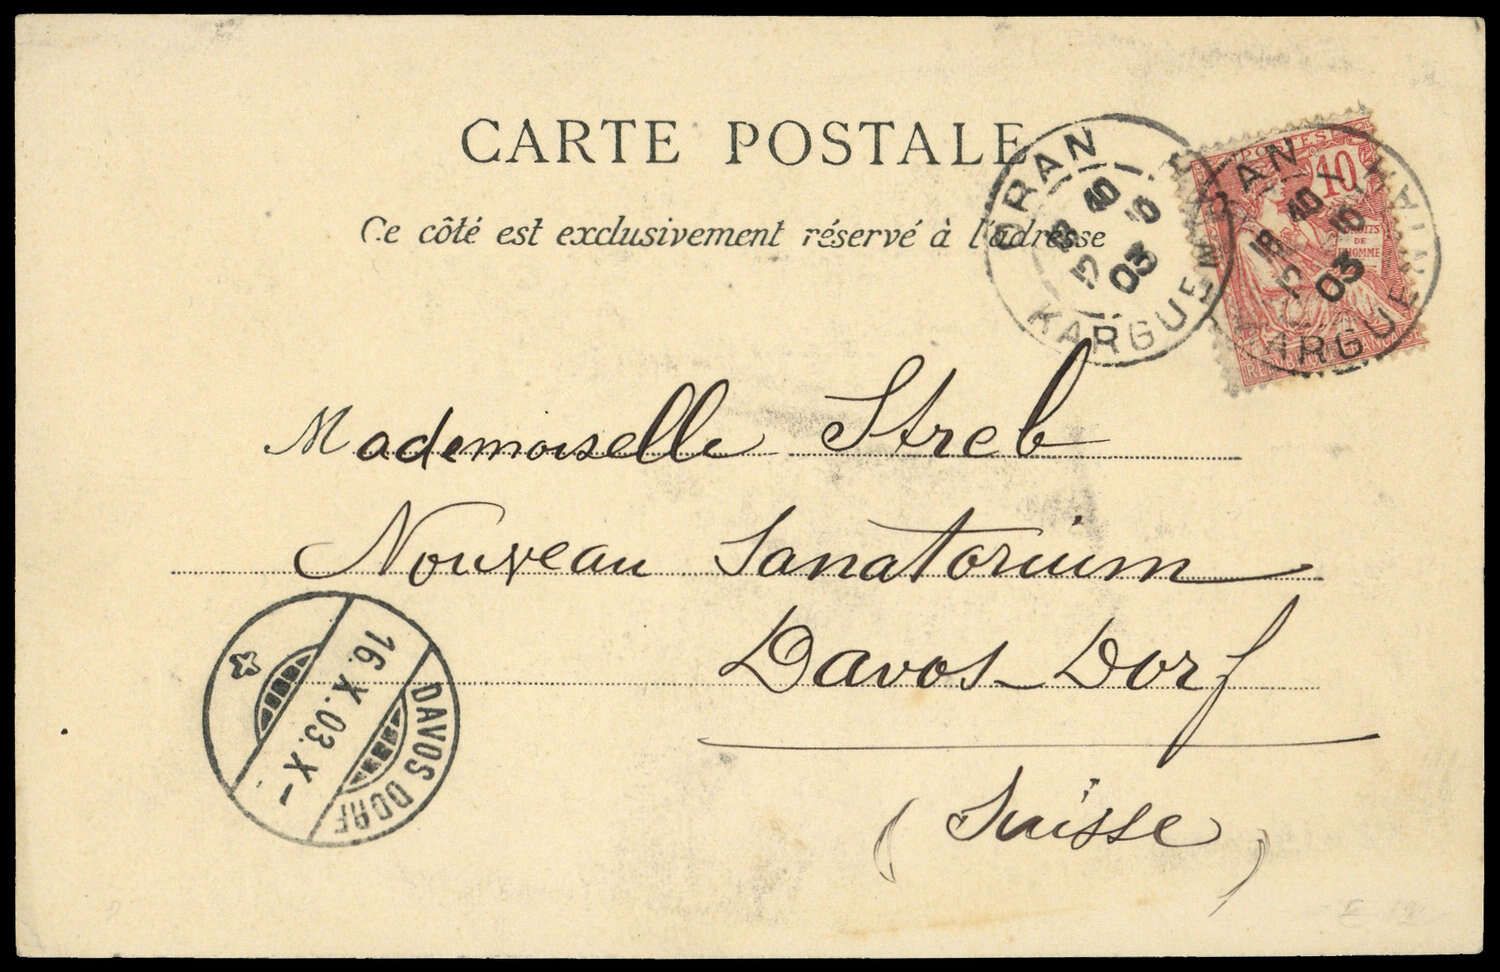 CARTE POSTALE
Ce côté est exclusivement réservé à l'adresse
ORAN
18 40
12 10
03
KARGUENTAH
ORAN
18 40
12 10
03
KARGUENTAH
POSTES
10
DROITS
DE
L'HOMME
Mademoiselle Streb
Nouveau Sanatorium
Davos-Dorf
(Suisse)
16.X.03.X-
DAVOS DORF